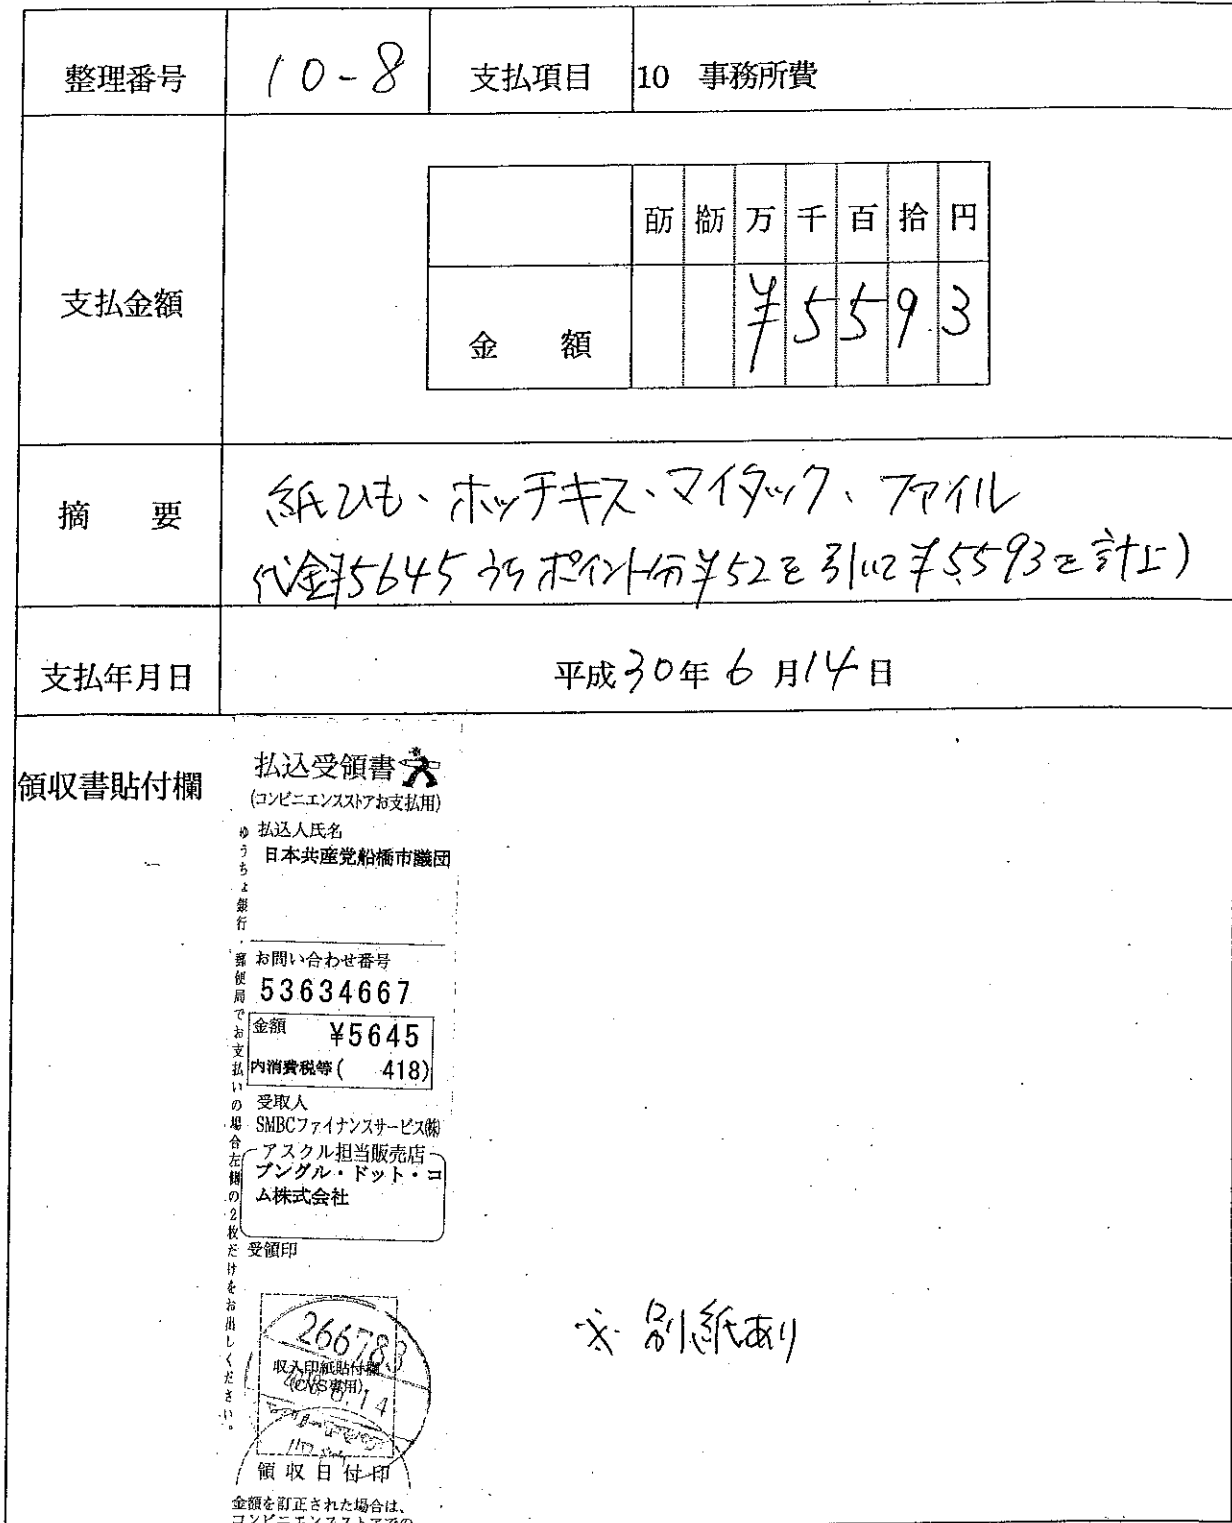 整理番号 10-8 支払項目 10 事務所費
百万 拾万 万 千 百 拾 円
支払金額
金額 ¥5593
摘要
紙ひも、ホッチキス、マイタック、ファイル
(代金¥5645うちポイント分¥52を引いて¥5593を計上)
支払年月日 平成30年6月14日
領収書貼付欄
払込受領書
(コンビニエンスストアお支払用)
払込人氏名
日本共産党船橋市議団
お問い合わせ番号
53634667
金額 ¥5645
内消費税等( 418)
受取人
SMBCファイナンスサービス㈱
アスクル担当販売店
ブングル・ドット・コ
ム株式会社
受領印
266783
収入印紙貼付欄
(CVS専用)
領収日付印
金額を訂正された場合は、
コンビニエンスストアでの
ゆうちょ銀行・郵便局でお支払いの場合左側の2枚だけをお出しください。
※別紙あり